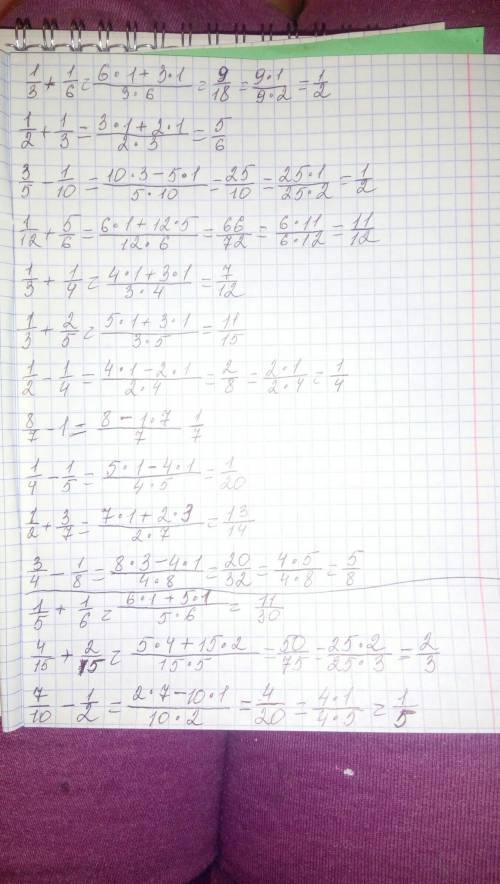 1/3 + 1/6 = (6·1+3·1)/(3·6) = 9/18 = (9·1)/(9·2) = 1/2
1/2 + 1/3 = (3·1+2·1)/(2·3) = 5/6
3/5 - 1/10 = (10·3-5·1)/(5·10) = 25/10 = (25·1)/(25·2) = 1/2
1/12 + 5/6 = (6·1+12·5)/(12·6) = 66/72 = (6·11)/(6·12) = 11/12
1/3 + 1/4 = (4·1+3·1)/(3·4) = 7/12
1/3 + 2/5 = (5·1+3·1)/(3·5) = 11/15
1/2 - 1/4 = (4·1-2·1)/(2·4) = 2/8 = (2·1)/(2·4) = 1/4
8/7 - 1 = (8-1·7)/7 1/7
1/4 - 1/5 = (5·1-4·1)/(4·5) = 1/20
1/2 + 3/7 = (7·1+2·3)/(2·7) = 13/14
3/4 - 1/8 = (8·3-4·1)/(4·8) = 20/32 = (4·5)/(4·8) = 5/8
1/5 + 1/6 = (6·1+5·1)/(5·6) = 11/30
4/15 + 2/5 = (5·4+15·2)/(15·5) = 50/75 = (25·2)/(25·3) = 2/3
7/10 - 1/2 = (2·7-10·1)/(10·2) = 4/20 = (4·1)/(4·5) = 1/5